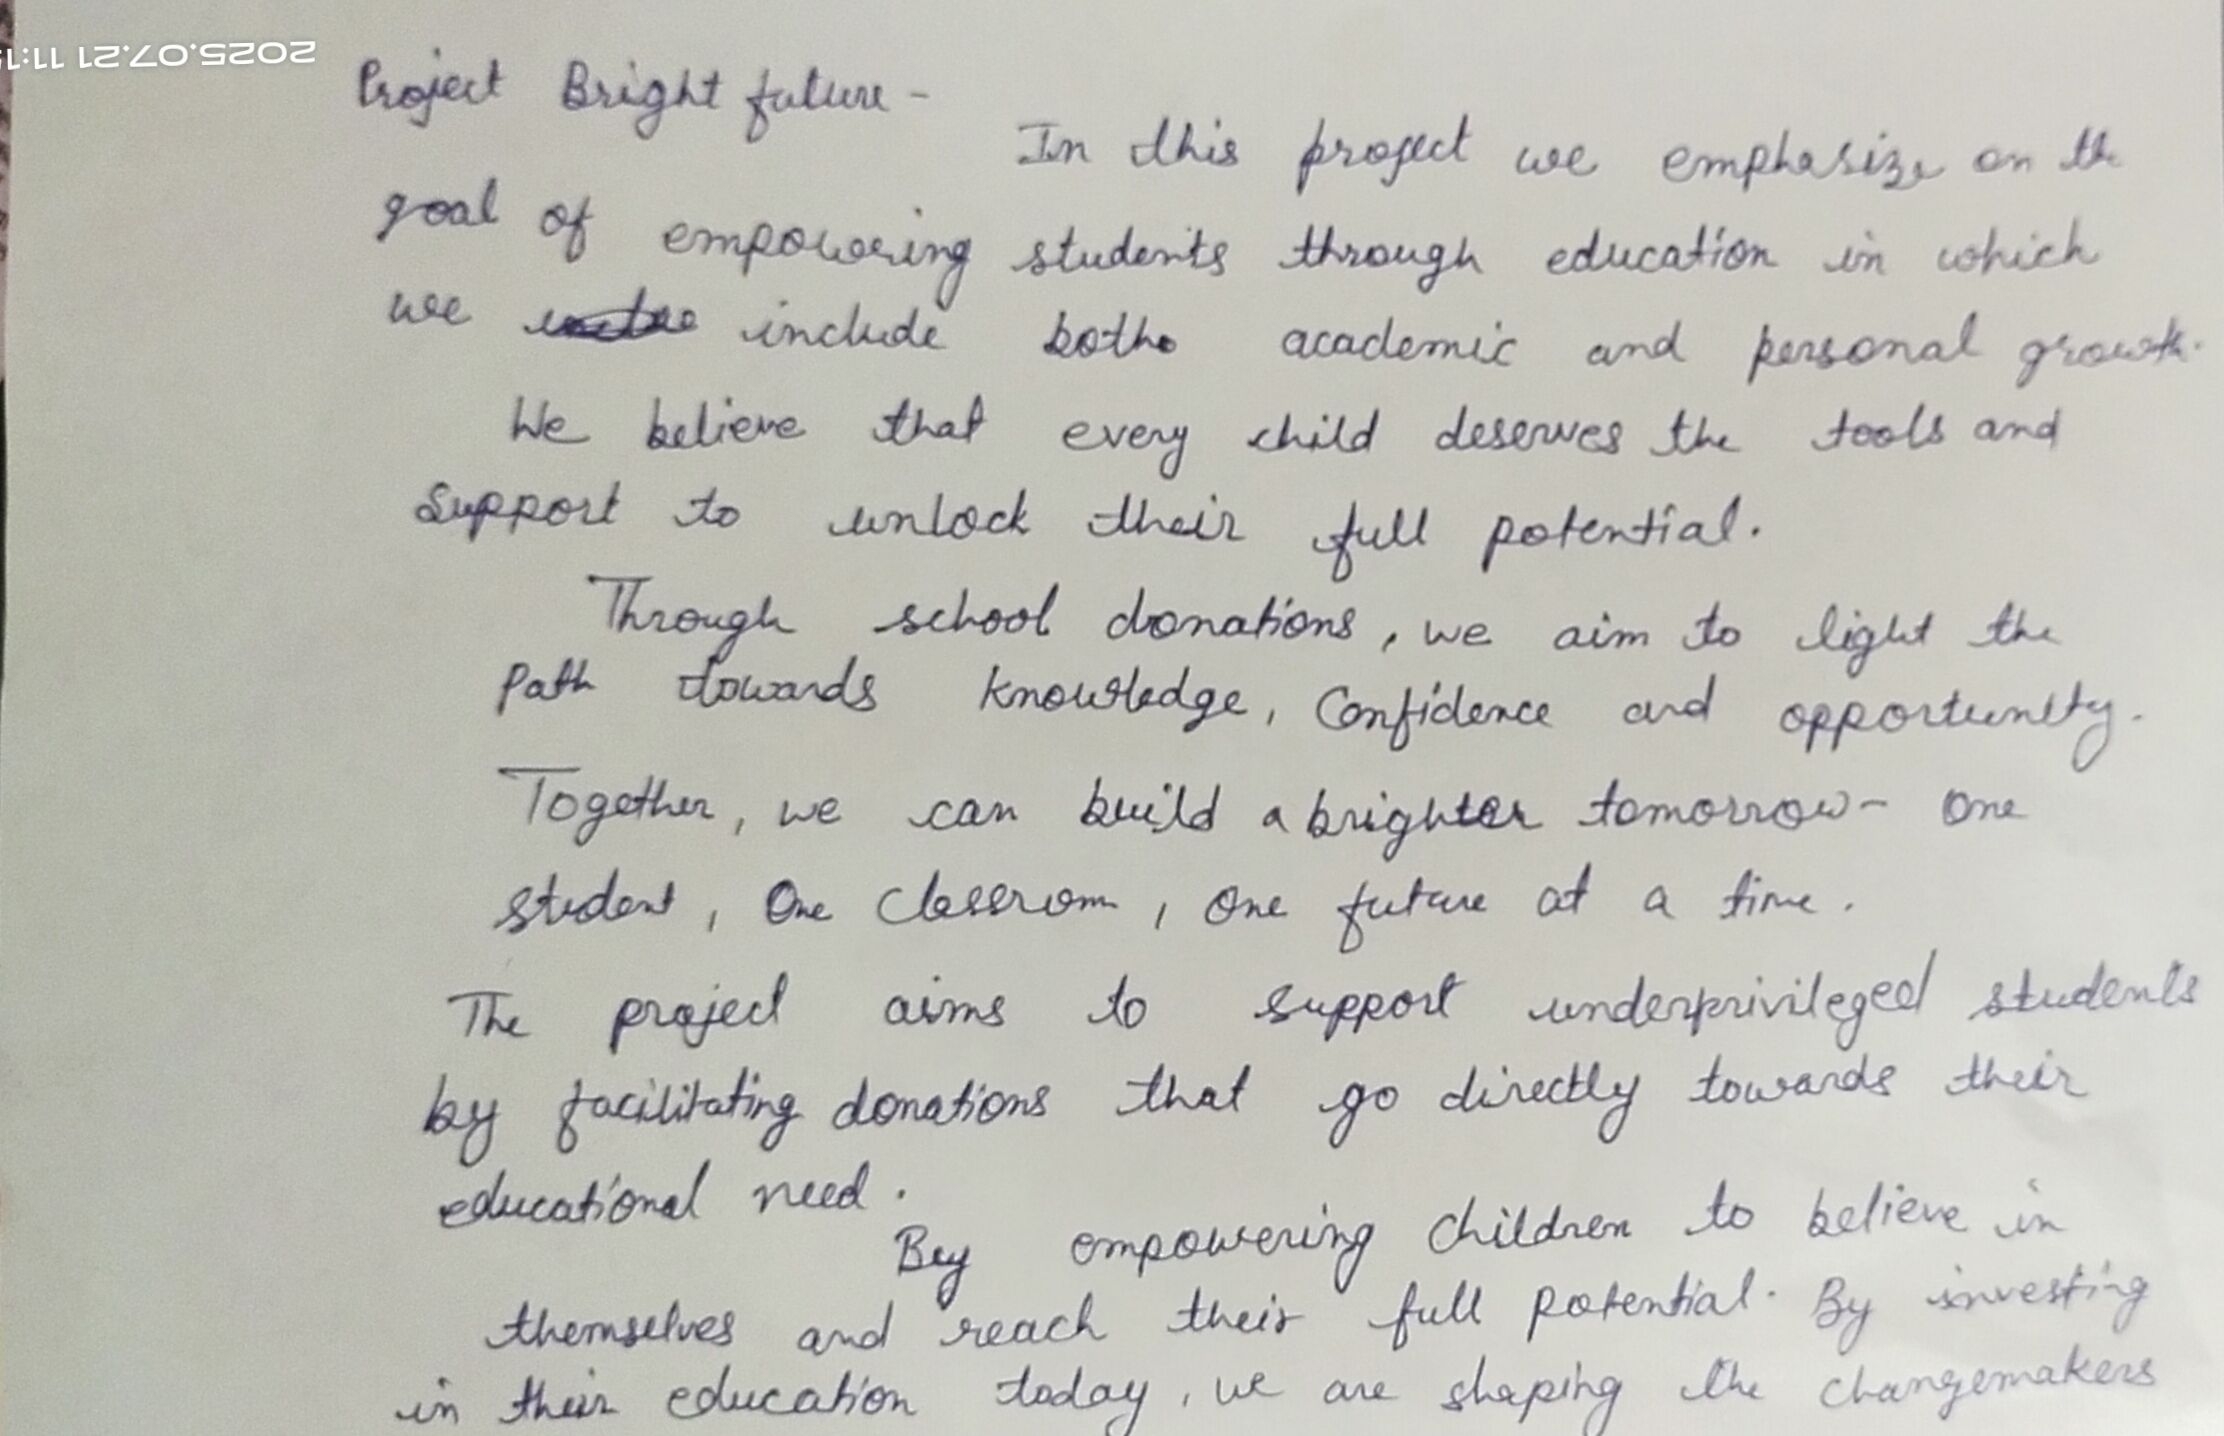 2025.07.21 11:15
Project Bright future -
In this project we emphasize on the
goal of empowering students through education in which
we include both academic and personal growth.
We believe that every child deserves the tools and
Support to unlock their full potential.
Through school donations, we aim to light the
Path towards knowledge, Confidence and opportunity.
Together, we can build a brighter tomorrow - One
student, One classroom, One future at a time.
The project aims to support underprivileged students
by facilitating donations that go directly towards their
educational need.
By empowering children to believe in
themselves and reach their full potential. By investing
in their education today, we are shaping the changemakers